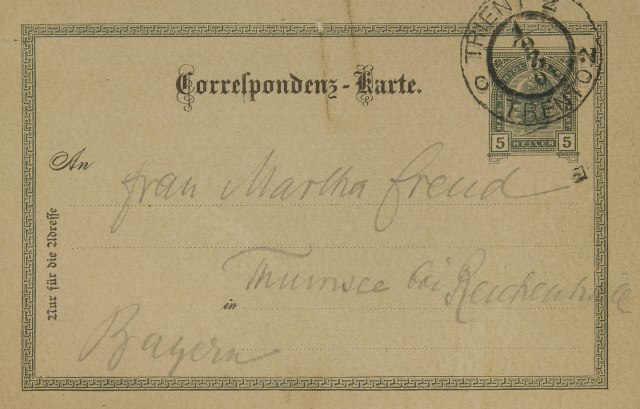 TRIENT 2
TRENTO 2
Correspondenz-Karte.
5 HELLER 5
An
Frau Martha Freud
Nur für die Adresse
Thumsee bei Reichenhall
in
Bayern